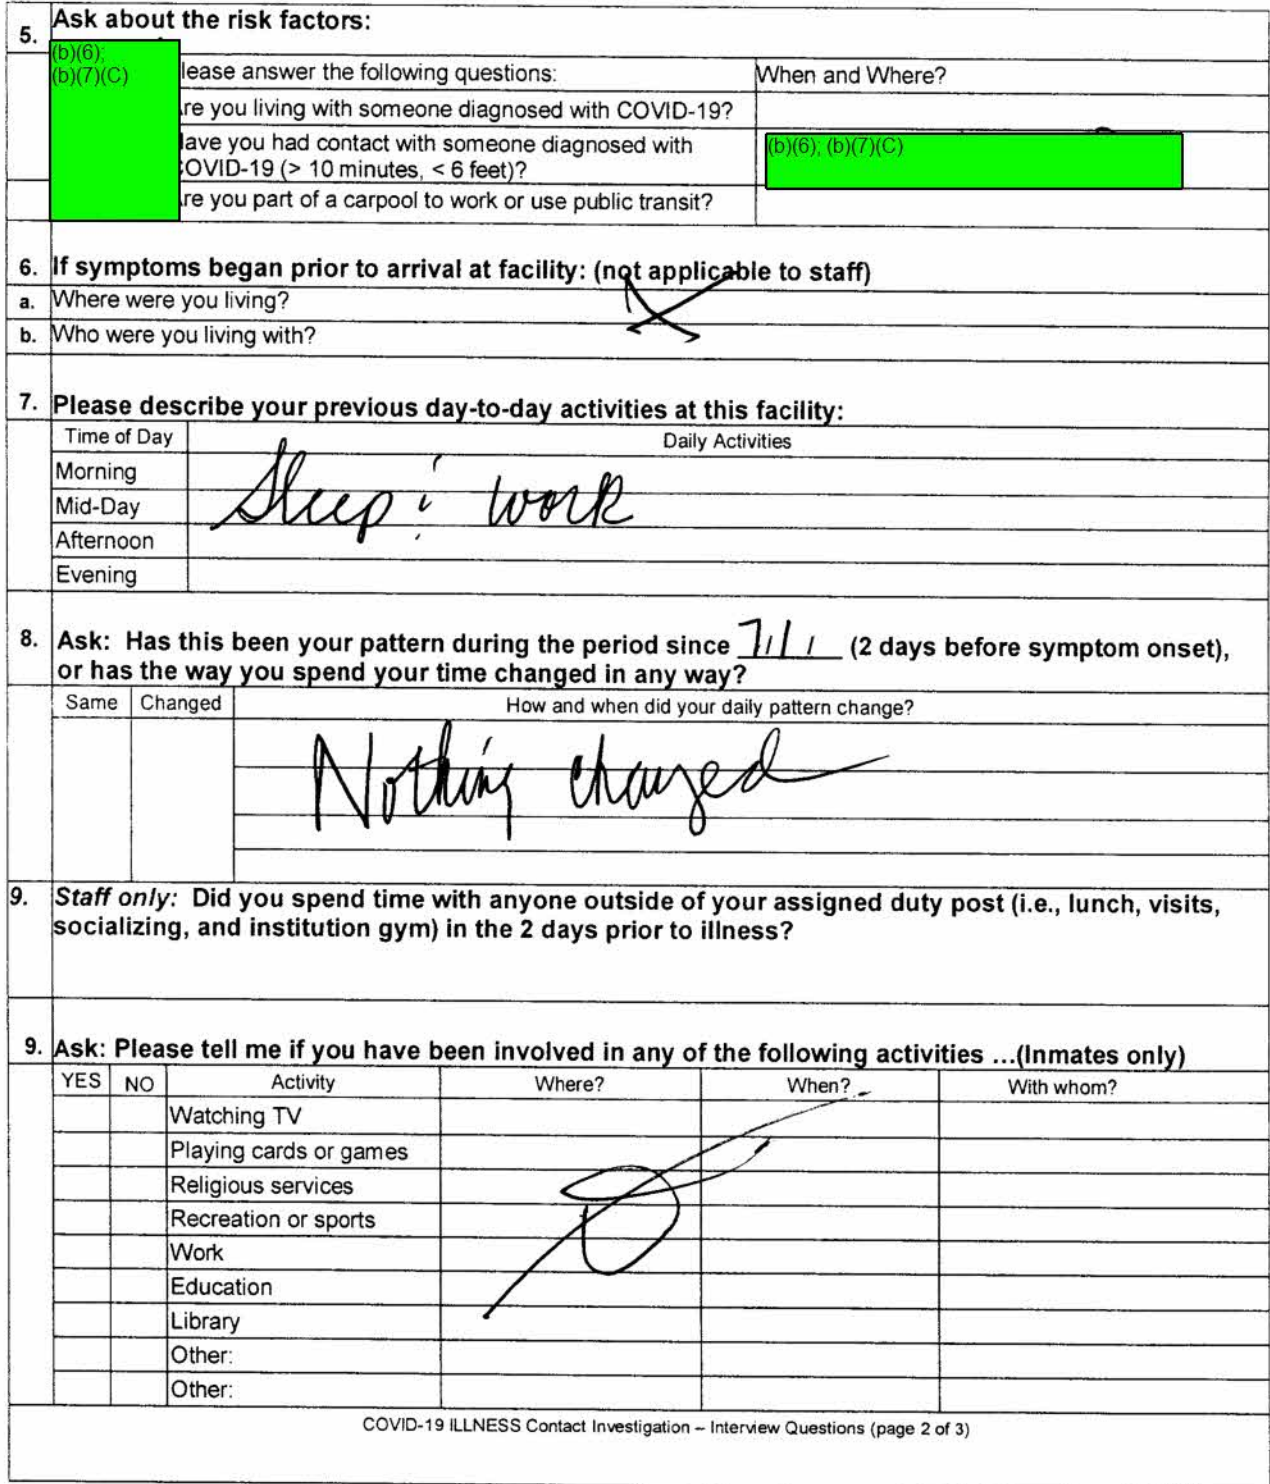 5. Ask about the risk factors:
(b)(6);
(b)(7)(C)
lease answer the following questions: When and Where?
re you living with someone diagnosed with COVID-19?
ave you had contact with someone diagnosed with
OVID-19 (> 10 minutes, < 6 feet)?
(b)(6); (b)(7)(C)
re you part of a carpool to work or use public transit?
6. If symptoms began prior to arrival at facility: (not applicable to staff)
a. Where were you living?
b. Who were you living with?
7. Please describe your previous day-to-day activities at this facility:
Time of Day Daily Activities
Morning
Mid-Day
Sleep & work
Afternoon
Evening
8. Ask: Has this been your pattern during the period since (2 days before symptom onset),
or has the way you spend your time changed in any way?
Same Changed How and when did your daily pattern change?
Nothing changed
9. Staff only: Did you spend time with anyone outside of your assigned duty post (i.e., lunch, visits,
socializing, and institution gym) in the 2 days prior to illness?
9. Ask: Please tell me if you have been involved in any of the following activities ...(Inmates only)
YES NO Activity Where? When? With whom?
Watching TV
Playing cards or games
Religious services
Recreation or sports
Work
Education
Library
Other:
Other:
COVID-19 ILLNESS Contact Investigation – Interview Questions (page 2 of 3)